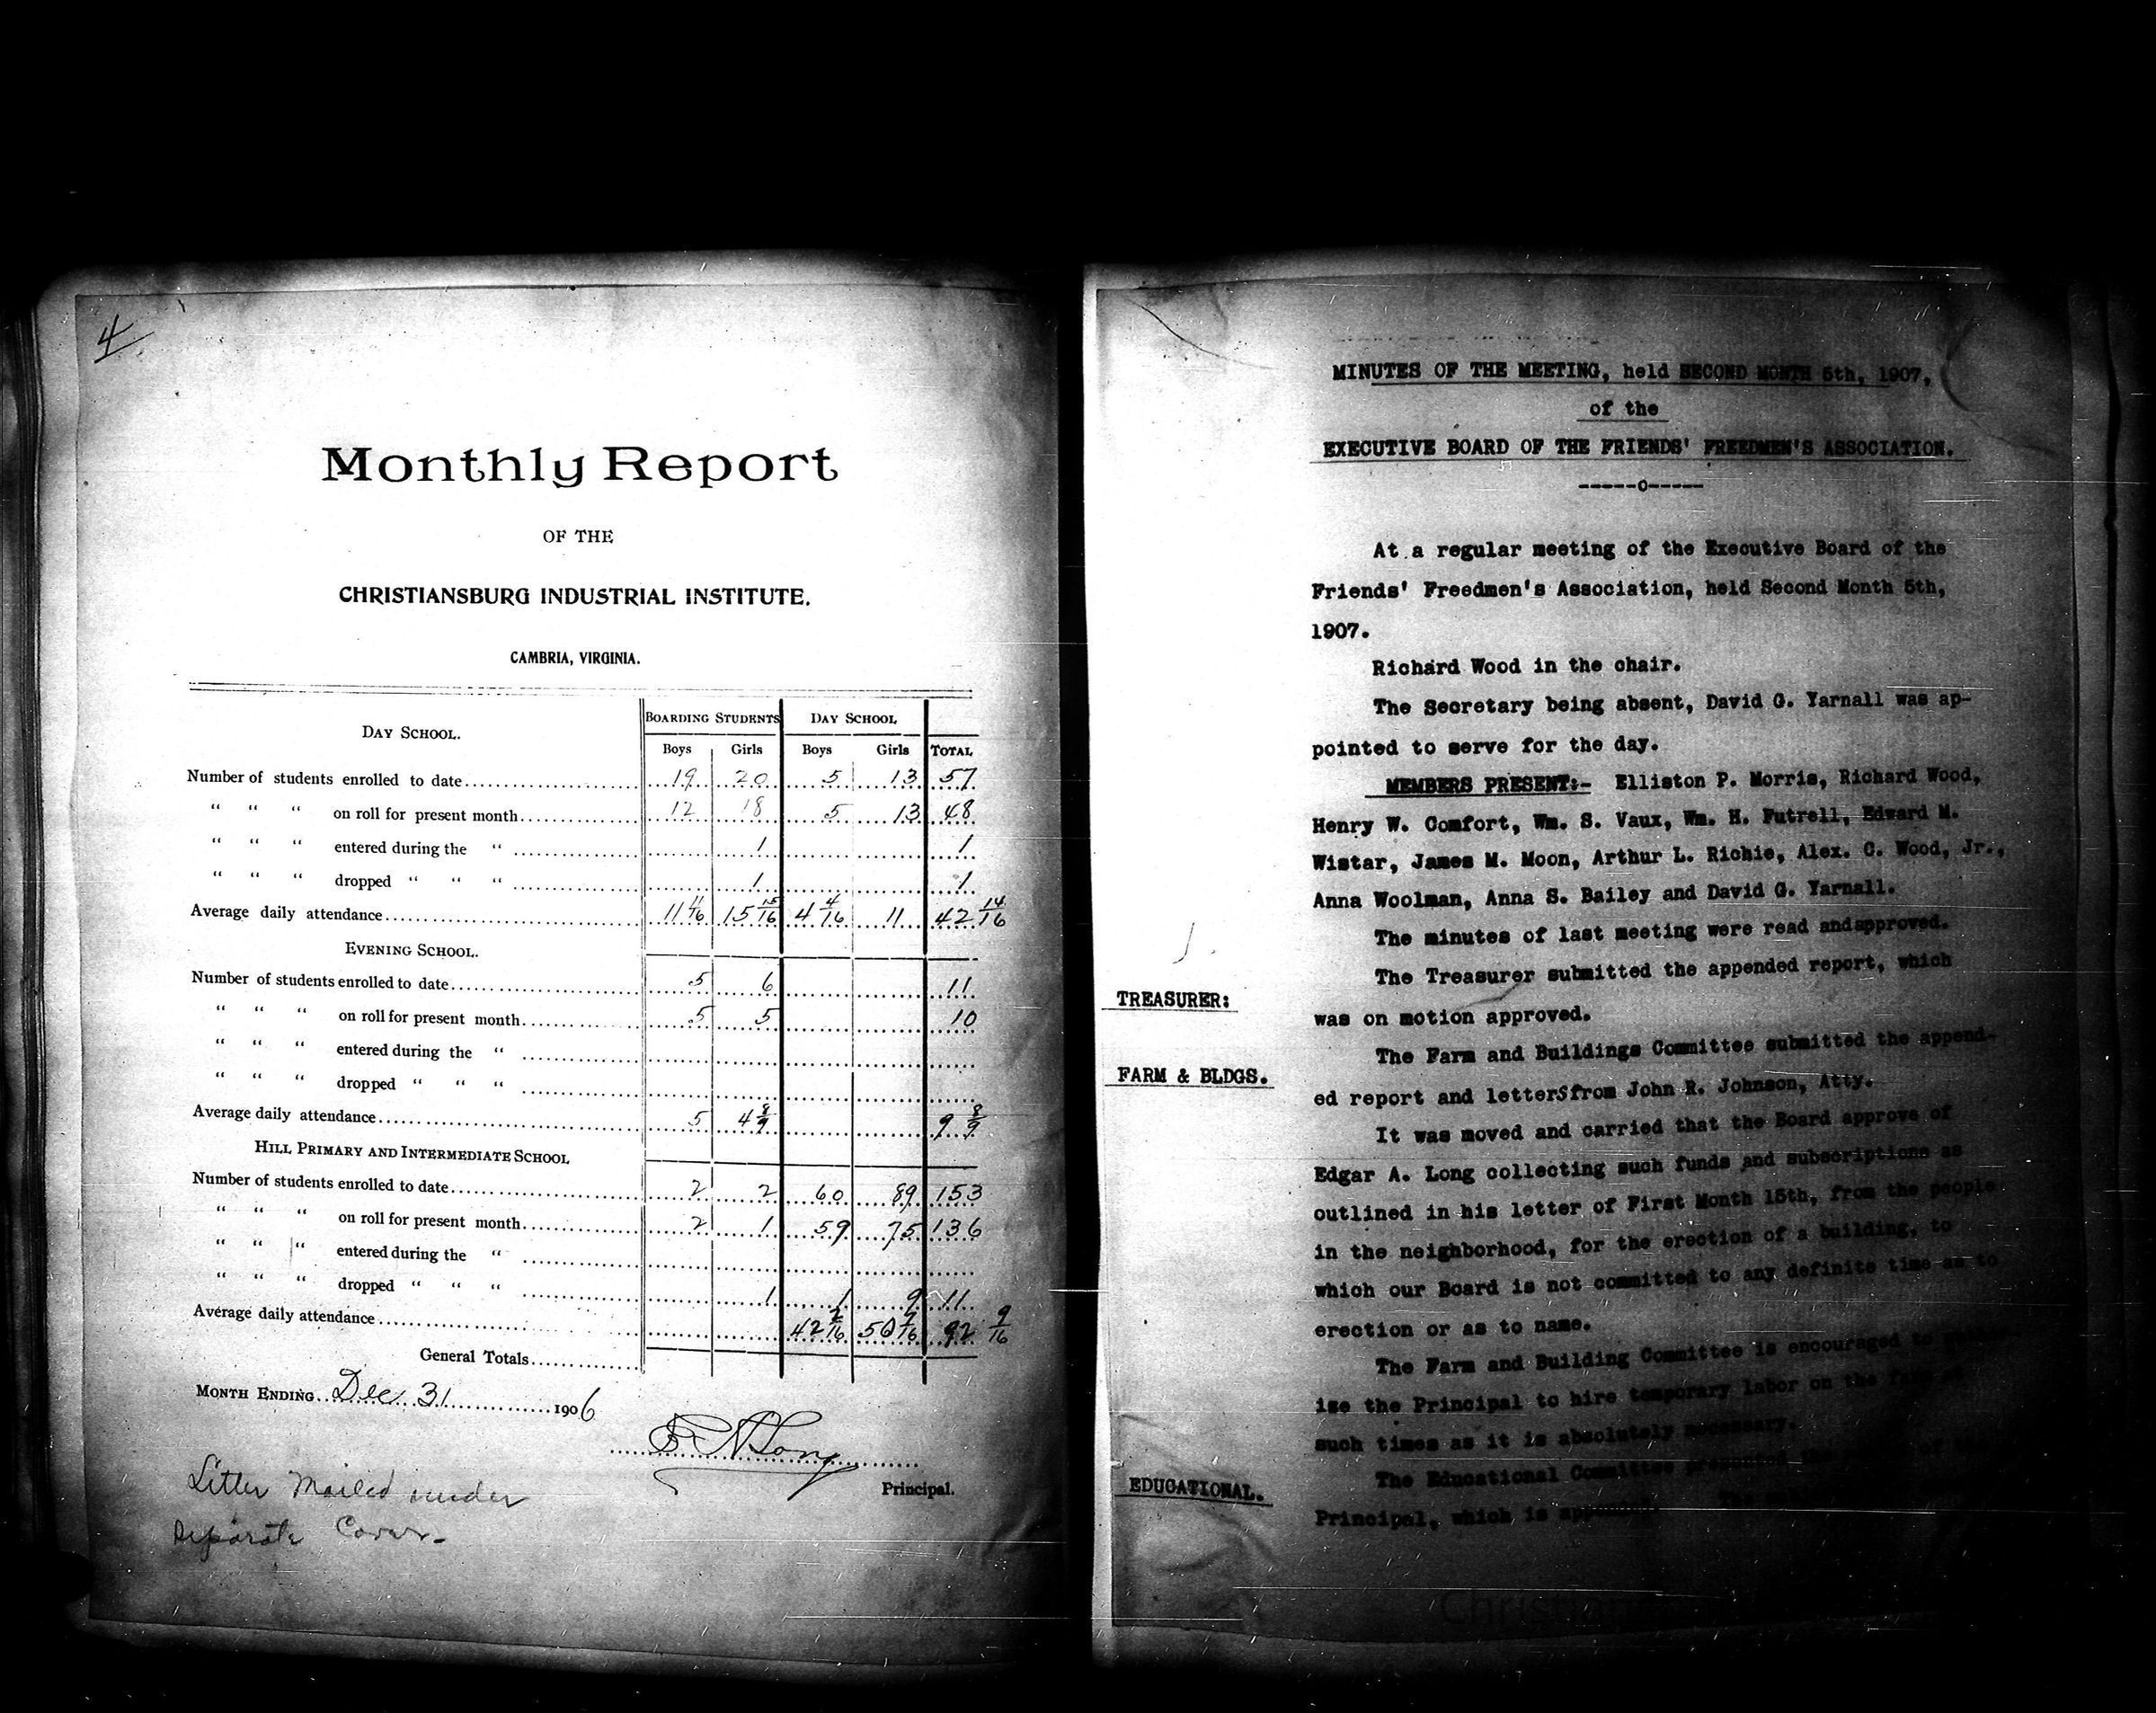 4
Monthly Report
OF THE
CHRISTIANSBURG INDUSTRIAL INSTITUTE.
CAMBRIA, VIRGINIA.
DAY SCHOOL. BOARDING STUDENTS DAY SCHOOL
Boys Girls Boys Girls TOTAL
Number of students enrolled to date 19 20 5 13 57
" " " on roll for present month 12 18 5 13 48
" " " entered during the " 1 1
" " " dropped " " " 1 1
Average daily attendance 11 11/16 15 15/16 4 4/16 11 42 14/16
EVENING SCHOOL.
Number of students enrolled to date 5 6 11
" " " on roll for present month 5 5 10
" " " entered during the "
" " " dropped " " "
Average daily attendance 5 4 8/9 9 8/9
HILL PRIMARY AND INTERMEDIATE SCHOOL
Number of students enrolled to date 2 2 60 89 153
" " " on roll for present month 2 1 59 75 136
" " " entered during the "
" " " dropped " " " 1 1 9 11
Average daily attendance 42 2/16 50 7/16 92 9/16
General Totals
MONTH ENDING Dec. 31 1906
E A Long
Principal.
Letter Mailed under
Separate Cover.
MINUTES OF THE MEETING, held SECOND MONTH 5th, 1907,
of the
EXECUTIVE BOARD OF THE FRIENDS' FREEDMEN'S ASSOCIATION.
-----o-----
At a regular meeting of the Executive Board of the
Friends' Freedmen's Association, held Second Month 5th,
1907.
Richard Wood in the chair.
The Secretary being absent, David G. Yarnall was ap-
pointed to serve for the day.
MEMBERS PRESENT:- Elliston P. Morris, Richard Wood,
Henry W. Comfort, Wm. S. Vaux, Wm. H. Futrell, Edward M.
Wistar, James M. Moon, Arthur L. Richie, Alex. C. Wood, Jr.,
Anna Woolman, Anna S. Bailey and David G. Yarnall.
The minutes of last meeting were read andapproved.
TREASURER: The Treasurer submitted the appended report, which
was on motion approved.
FARM & BLDGS. The Farm and Buildings Committee submitted the append-
ed report and letters from John R. Johnson, Atty.
It was moved and carried that the Board approve of
Edgar A. Long collecting such funds and subscriptions as
outlined in his letter of First Month 15th, from the people
in the neighborhood, for the erection of a building, to
which our Board is not committed to any definite time as to
erection or as to name.
The Farm and Building Committee is encouraged to
ize the Principal to hire temporary labor on the
such times as it is absolutely necessary.
EDUCATIONAL. The Educational Committee presented the
Principal, which is